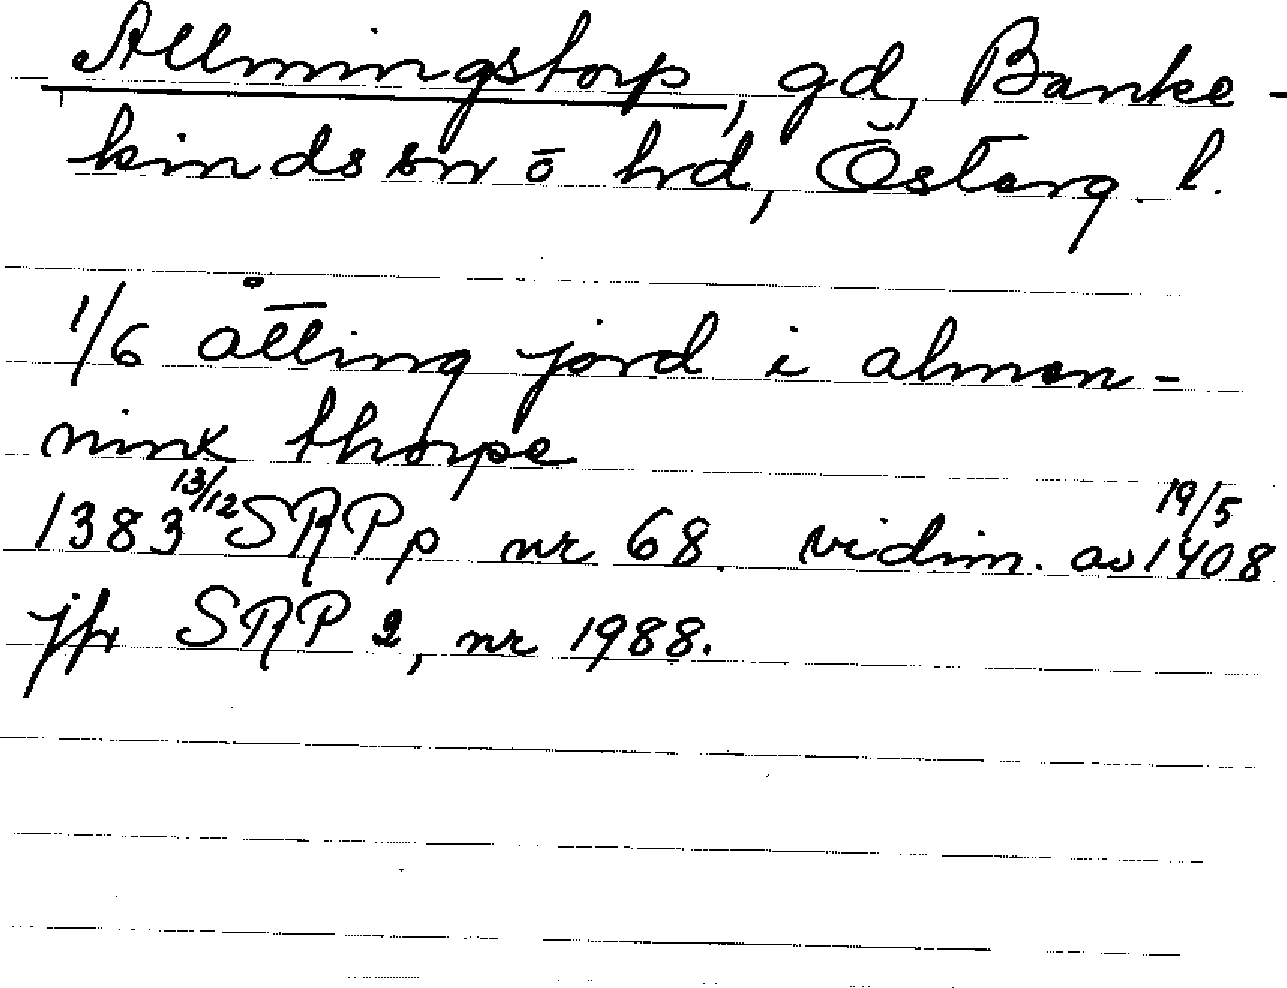 Allmingstorp, gd, Banke-
kinds sn o hrd, Österg. l.
1/6 åtting jord i almen-
ninx thorpe
1383 13/12 SRPp nr 68. vidim. av 19/5 1408
jfr SRP 2, nr 1988.